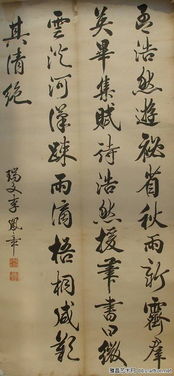 孟浩然遊祕省秋雨新霽羣
英畢集賦詩浩然援筆書曰微
雲淡河漢疎雨滴梧桐咸歎
其清絕
瑞文李鳳